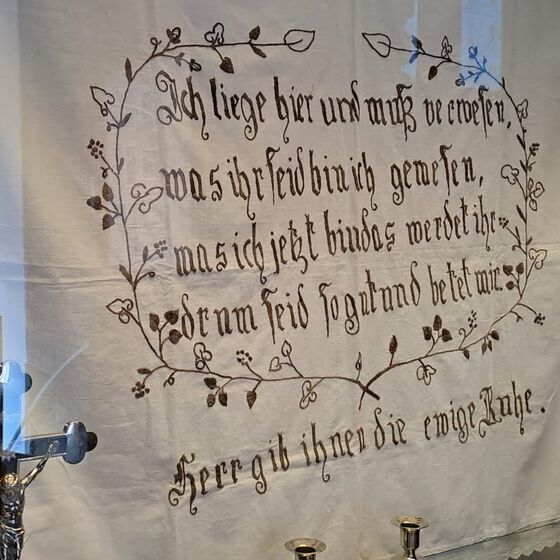 Ich liege hier und muß verwesen,
was ihr seid bin ich gewesen,
was ich jetzt bin das werdet ihr
drum seid so gut und betet mir.
Herr gib ihnen die ewige Ruhe.